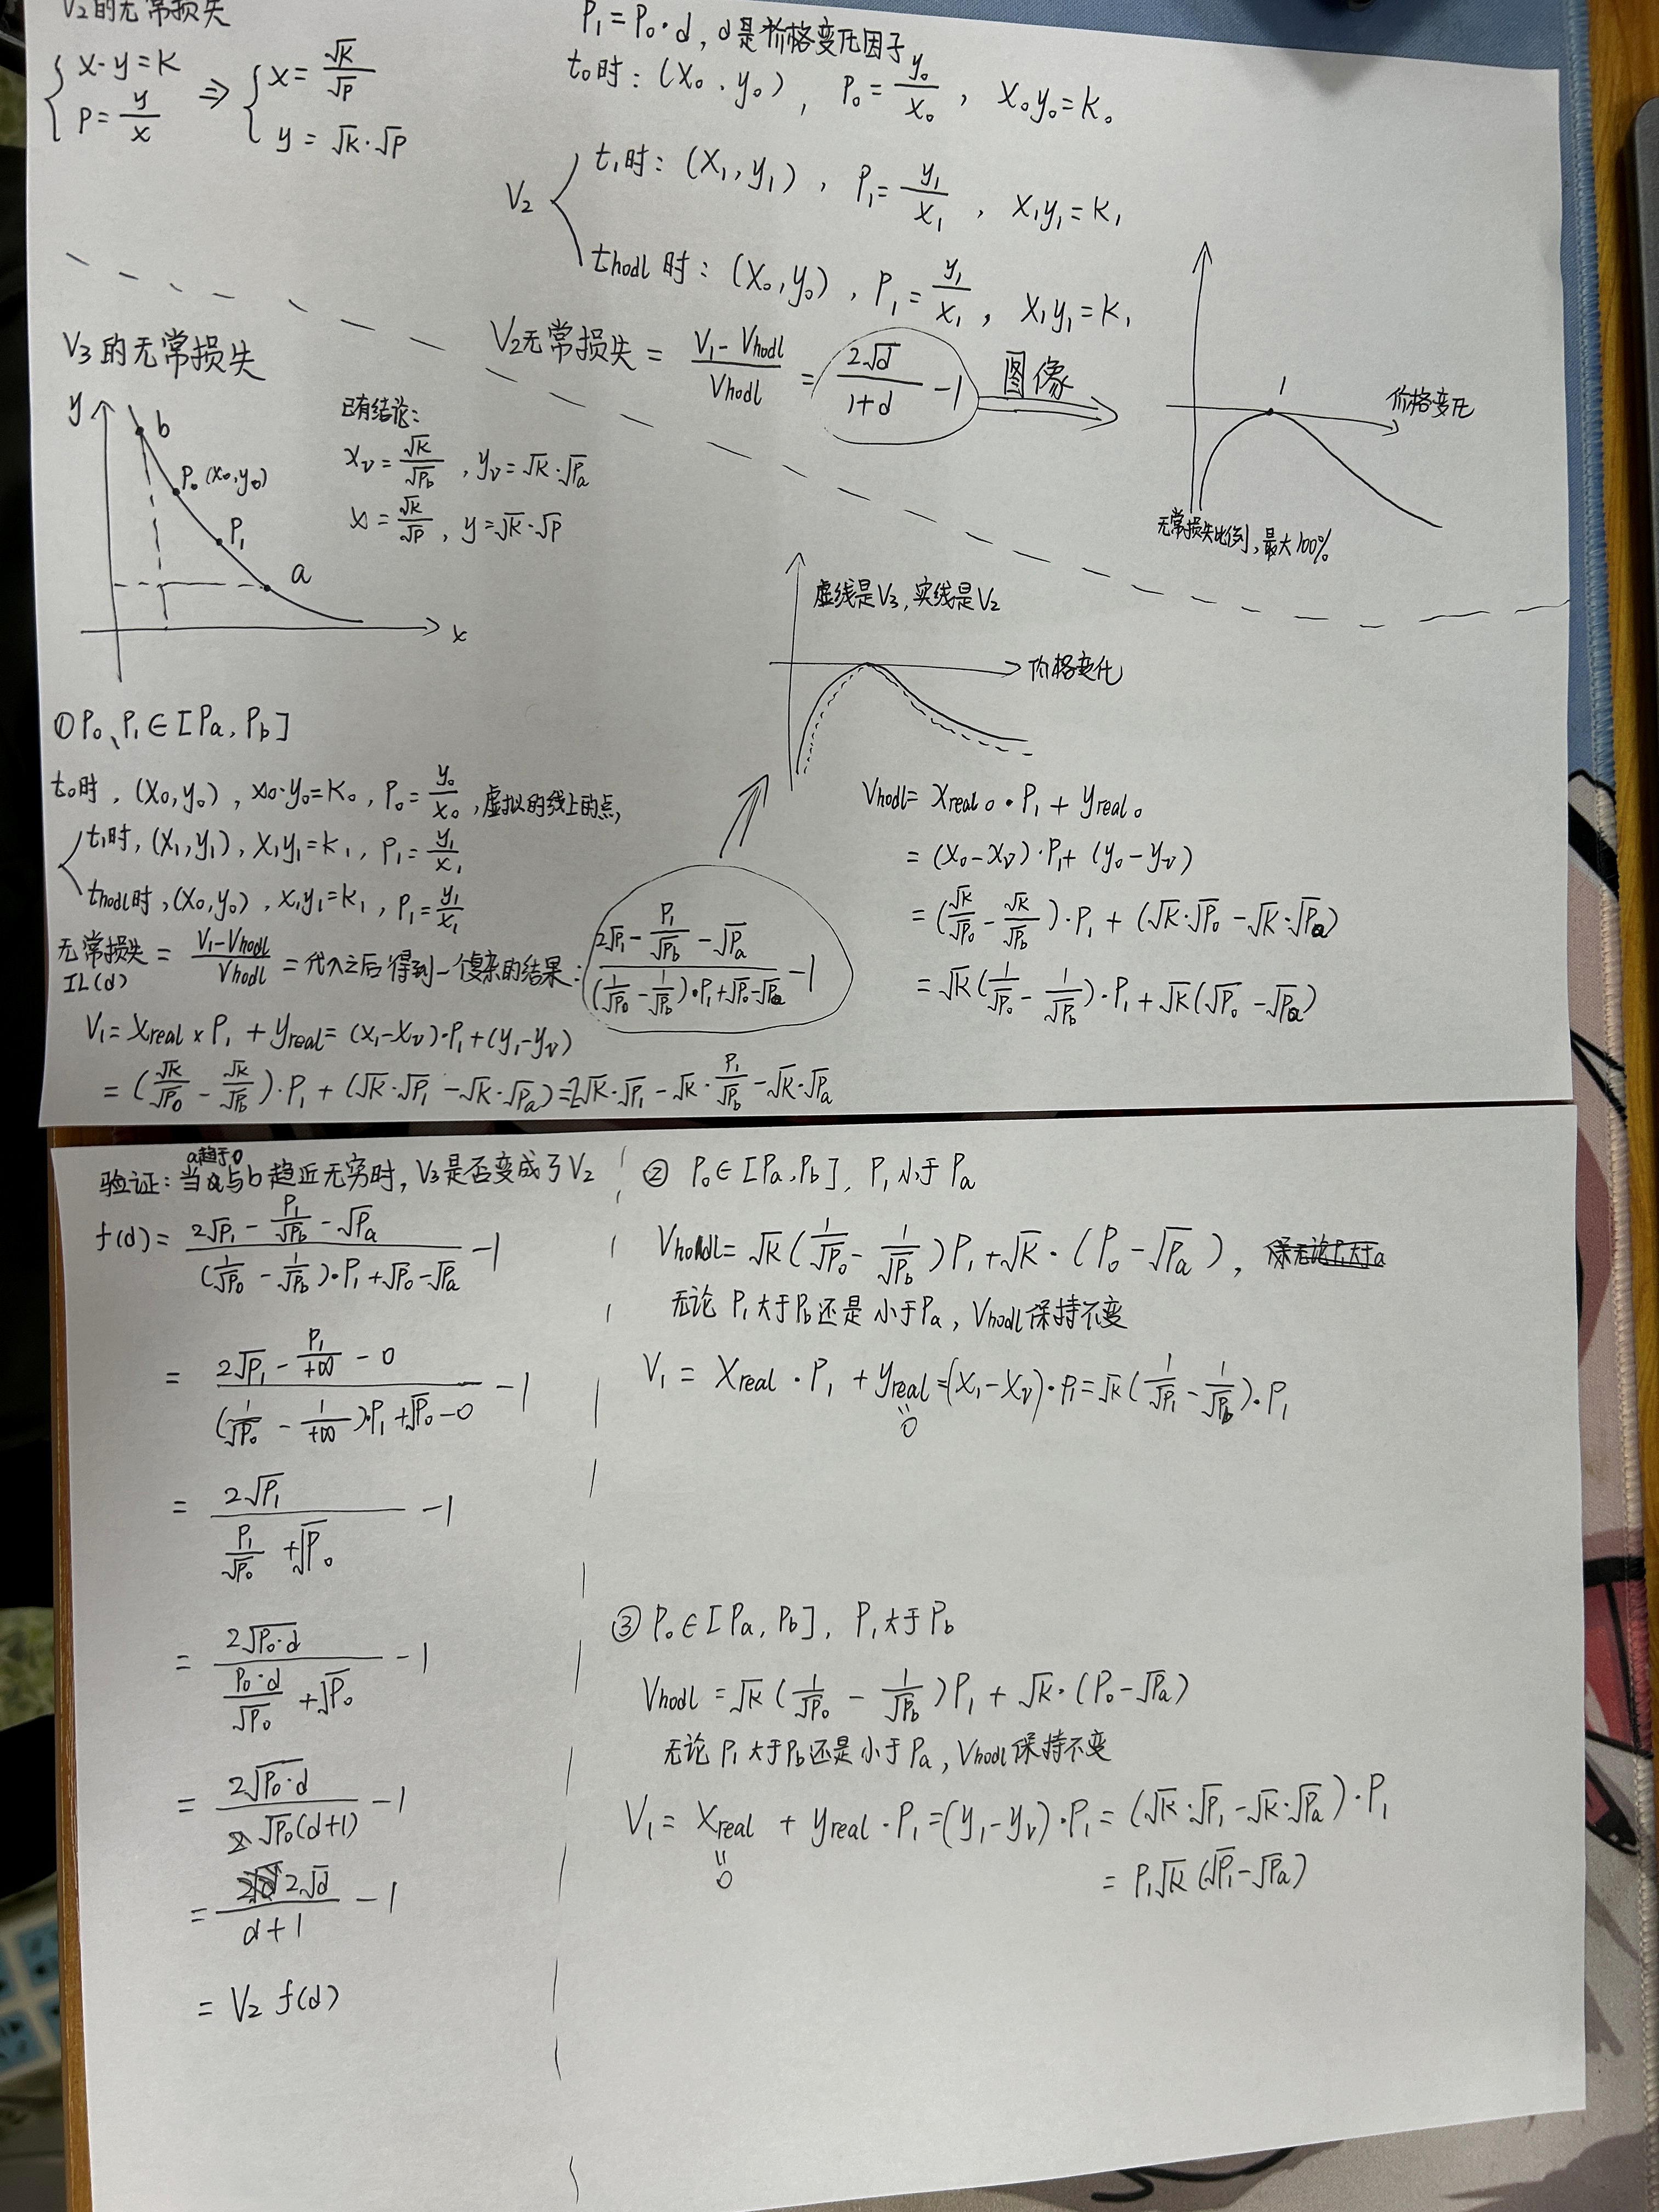 V₂的无常损失
{ x·y=K
P=y/x ⇒ { x=√K/√P
y=√K·√P
P₁=P₀·d, d是价格变化因子
t₀时: (x₀, y₀), P₀=y₀/x₀, x₀y₀=K₀
V₂ { t₁时: (x₁, y₁), P₁=y₁/x₁, x₁y₁=K₁
t_hodl时: (x₀, y₀), P₁=y₁/x₁, x₁y₁=K₁
V₂无常损失 = (V₁-V_hodl)/V_hodl = 2√d/(1+d) -1 图像⇒
1
价格变化
无常损失比例,最大100%
V₃的无常损失
y
b
P₀(x₀,y₀)
P₁
a
x
已有结论:
x_v=√K/√P_b, y_v=√K·√P_a
x=√K/√P, y=√K·√P
虚线是V₃,实线是V₂
价格变化
① P₀、P₁∈[P_a, P_b]
t₀时, (x₀,y₀), x₀·y₀=K₀, P₀=y₀/x₀, 虚拟的线上的点,
{ t₁时, (x₁,y₁), x₁y₁=K₁, P₁=y₁/x₁
t_hodl时, (x₀,y₀), x₁y₁=K₁, P₁=y₁/x₁
无常损失 IL(d) = (V₁-V_hodl)/V_hodl = 代入之后得到一个复杂的结果: (2√P₁ - P₁/√P_b - √P_a)/((1/√P₀ - 1/√P_b)·P₁+√P₀-√P_a) -1
V₁=x_real×P₁+y_real=(x₁-x_v)·P₁+(y₁-y_v)
=(√K/√P₀ - √K/√P_b)·P₁+(√K·√P₁-√K·√P_a)=2√K·√P₁-√K·P₁/√P_b-√K·√P_a
V_hodl=x_real₀·P₁+y_real₀
=(x₀-x_v)·P₁+(y₀-y_v)
=(√K/√P₀ - √K/√P_b)·P₁+(√K·√P₀-√K·√P_a)
=√K(1/√P₀ - 1/√P_b)·P₁+√K(√P₀-√P_a)
验证: 当a趋于0与b趋近无穷时, V₃是否变成了V₂
f(d)=(2√P₁ - P₁/√P_b - √P_a)/((1/√P₀ - 1/√P_b)·P₁+√P₀-√P_a) -1
=(2√P₁ - P₁/+∞ - 0)/((1/√P₀ - 1/+∞)·P₁+√P₀-0) -1
=2√P₁/(P₁/√P₀+√P₀) -1
=2√P₀·d/(P₀·d/√P₀+√P₀) -1
=2√P₀·d/(√P₀(d+1)) -1
=2√d/(d+1) -1
=V₂ f(d)
② P₀∈[P_a, P_b], P₁小于P_a
V_hodl=√K(1/√P₀ - 1/√P_b)P₁+√K·(P₀-√P_a),
无论P₁大于P_b还是小于P_a, V_hodl保持不变
V₁=x_real·P₁+y_real=(x₁-x_v)·P₁=√K(1/√P₁ - 1/√P_b)·P₁
=0
③ P₀∈[P_a, P_b], P₁大于P_b
V_hodl=√K(1/√P₀ - 1/√P_b)P₁+√K·(P₀-√P_a)
无论P₁大于P_b还是小于P_a, V_hodl保持不变
V₁=x_real+y_real·P₁=(y₁-y_v)·P₁=(√K·√P₁-√K·√P_a)·P₁
=0
=P₁√K(√P₁-√P_a)